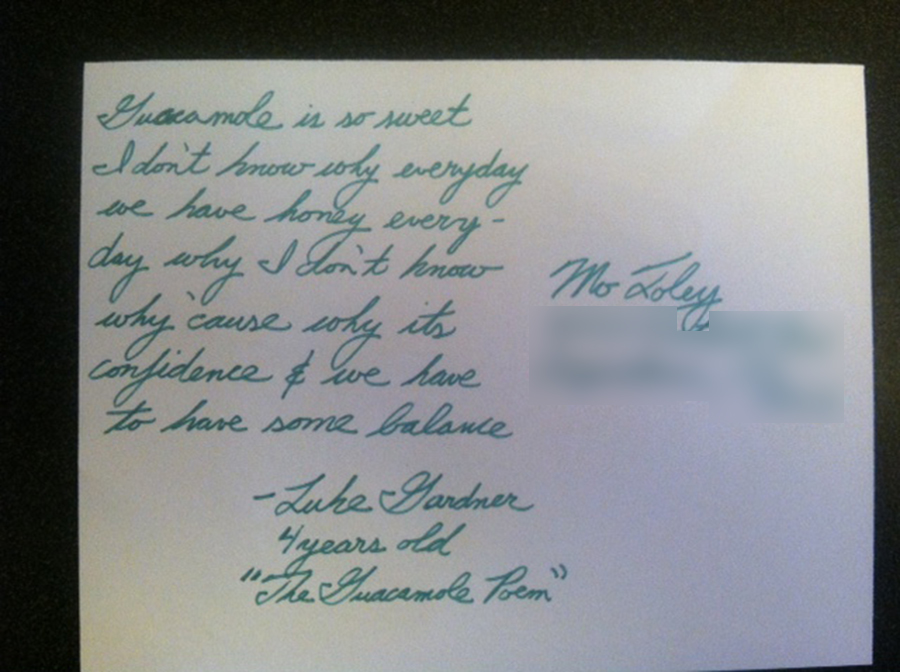 Guacamole is so sweet
I don't know why everyday
we have honey every-
day why I don't know
why 'cause why its
confidence & we have
to have some balance
-Luke Gardner
4 years old
"The Guacamole Poem"
Mo Toley